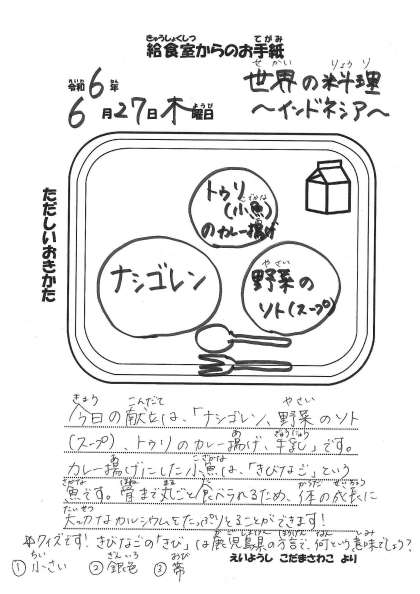 給食室からのお手紙
令和6年
6月27日木曜日
世界の料理
〜インドネシア〜
ただしいおきかた
トゥリ
(小魚)
のカレー揚げ
ナシゴレン
野菜の
ソト(スープ)
今日の献立は、「ナシゴレン、野菜のソト
(スープ)、トゥリのカレー揚げ、牛乳」です。
カレー揚げにした小魚は、「きびなご」という
魚です。骨まで丸ごと食べられるため、体の成長に
大切なカルシウムをたっぷりとることができます!
※クイズです! きびなごの「きび」は鹿児島県の方言で、何という意味でしょう?
①小さい ②銀色 ③帯
えいようし こだまさわこ より